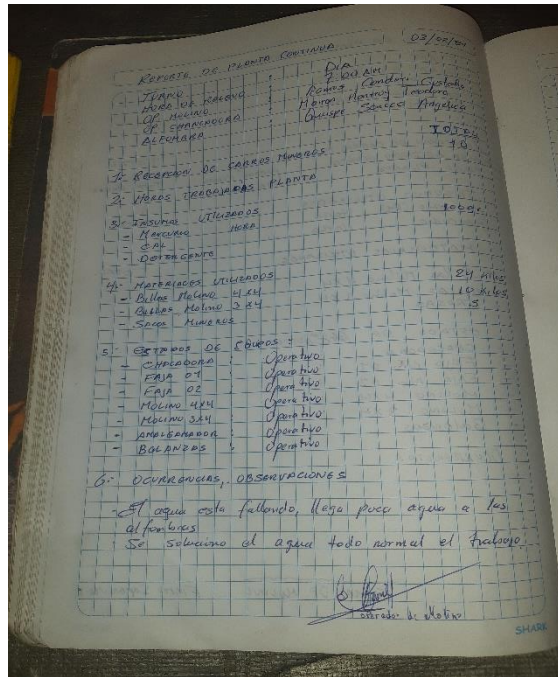 REPORTE DE PLANTA CONTINUA
- TURNO : DIA
- HORA DE RELEVO : 7:00 AM
- OP. MOLINO : Ramos Condori
- OP. CHANCADORA :
- ALFOMBRA : Quispe
1.- RECEPCION DE CARROS MINEROS
2.- HORAS TRABAJADAS PLANTA
3.- INSUMOS UTILIZADOS
- MERCURIO HORA
- CAL
- DETERGENTE
4.- MATERIALES UTILIZADOS
- Billas Molino 4x4 24 Kilos
- Billas Molino 3x4 10 Kilos
- SACOS MINEROS 5
5.- ESTADOS DE EQUIPOS :
- CHACADORA : Operativo
- FAJA 01 : Operativo
- FAJA 02 : Operativo
- MOLINO 4x4 : Operativo
- MOLINO 3x4 : Operativo
- AMALGAMADOR : Operativo
- BALANZAS : Operativo
6.- OCURRENCIAS, OBSERVACIONES
- El agua esta fallando, llega poca agua a las
alfombras
Se soluciono el agua todo normal el trabajo.
Operador de Molino
SHARK